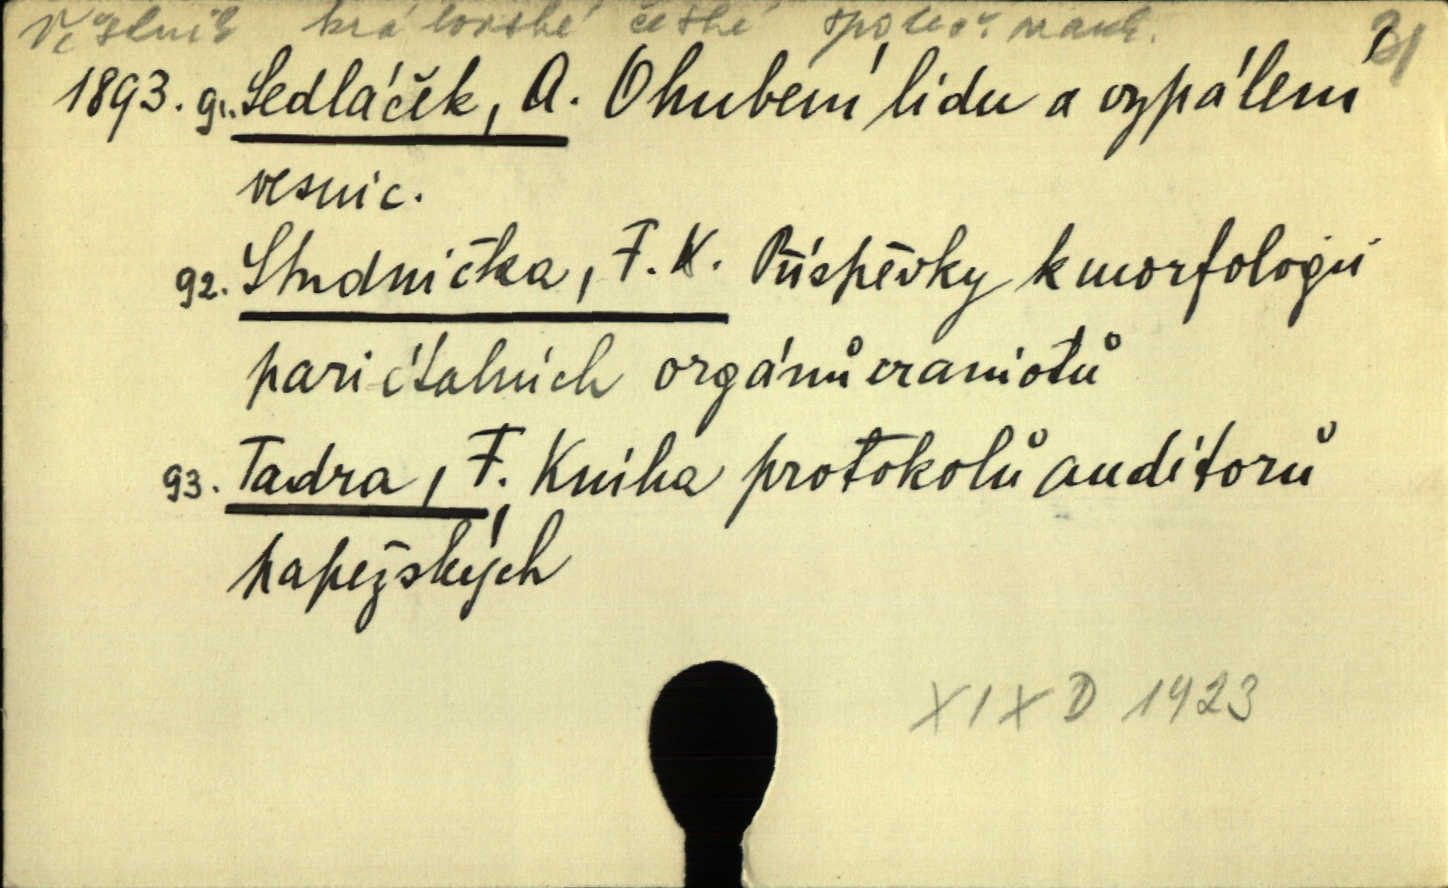 Věstník královské české společ. nauk. 31
1893. 91. Sedláček, A. Ohubení lidu a vypálení
vesnic.
92. Studnička, F. K. Příspěvky k morfologii
parietalních orgánů craniotů
93. Tadra, F. Kniha protokolů auditorů
papežských
XIX D 1923